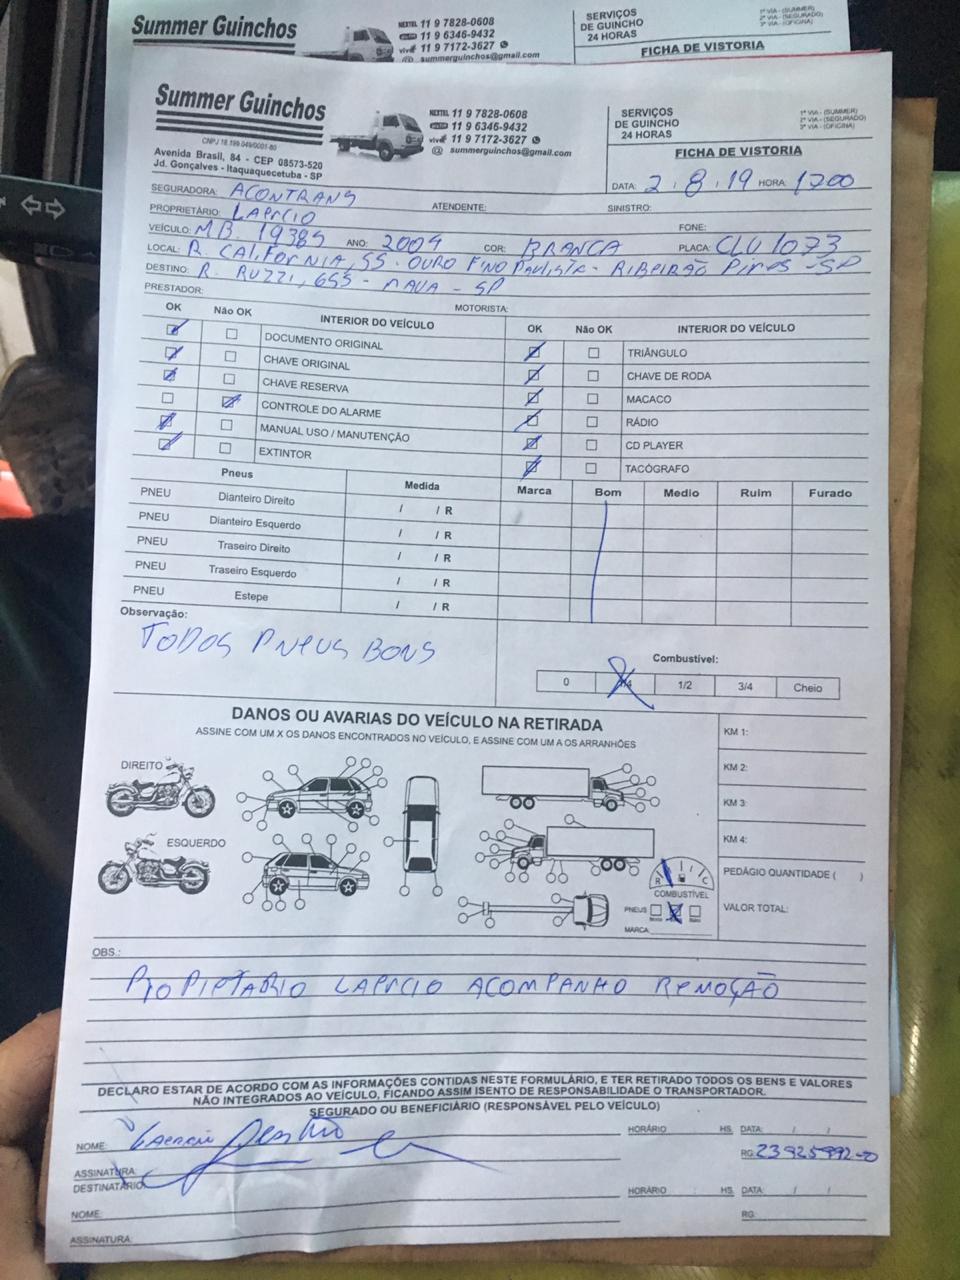 Summer Guinchos
NEXTEL 11 9 7828-0608
11 9 6346-9432
vivo 11 9 7172-3627
@ summerguinchos@gmail.com
SERVIÇOS
DE GUINCHO
24 HORAS
1ª VIA - (SUMMER)
2ª VIA - (SEGURADO)
3ª VIA - (OFICINA)
FICHA DE VISTORIA
Summer Guinchos
CNPJ 18.199.049/0001-80
Avenida Brasil, 84 - CEP 08573-520
Jd. Gonçalves - Itaquaquecetuba - SP
NEXTEL 11 9 7828-0608
11 9 6346-9432
vivo 11 9 7172-3627
@ summerguinchos@gmail.com
SERVIÇOS
DE GUINCHO
24 HORAS
1ª VIA - (SUMMER)
2ª VIA - (SEGURADO)
3ª VIA - (OFICINA)
FICHA DE VISTORIA
DATA: 2 . 8 . 19 HORA: 1700
SEGURADORA: ACONTRANS ATENDENTE: SINISTRO:
PROPRIETÁRIO: LAERCIO FONE:
VEÍCULO: MB. 1938S ANO: 2004 COR: BRANCA PLACA: CLU1073
LOCAL: R. CALIFORNIA, 55 - OURO FINO Paulista - RIBEIRÃO PIRES - SP
DESTINO: R. RUZZI, 655 - MAUA - SP
PRESTADOR: MOTORISTA:
OK Não OK INTERIOR DO VEÍCULO OK Não OK INTERIOR DO VEÍCULO
DOCUMENTO ORIGINAL TRIÂNGULO
CHAVE ORIGINAL CHAVE DE RODA
CHAVE RESERVA MACACO
CONTROLE DO ALARME RÁDIO
MANUAL USO / MANUTENÇÃO CD PLAYER
EXTINTOR TACÓGRAFO
Pneus Medida Marca Bom Medio Ruim Furado
PNEU Dianteiro Direito / / R
PNEU Dianteiro Esquerdo / / R
PNEU Traseiro Direito / / R
PNEU Traseiro Esquerdo / / R
PNEU Estepe / / R
Observação:
TODOS PNEUS BONS
Combustível:
0 1/4 1/2 3/4 Cheio
DANOS OU AVARIAS DO VEÍCULO NA RETIRADA
ASSINE COM UM X OS DANOS ENCONTRADOS NO VEÍCULO, E ASSINE COM UM A OS ARRANHÕES
DIREITO
ESQUERDO
KM 1:
KM 2:
KM 3:
KM 4:
PEDÁGIO QUANTIDADE ( )
VALOR TOTAL:
R C
COMBUSTÍVEL
PNEUS
MARCA
OBS.:
PROPIETARIO LAERCIO ACOMPANHO REMOÇÃO
DECLARO ESTAR DE ACORDO COM AS INFORMAÇÕES CONTIDAS NESTE FORMULÁRIO, E TER RETIRADO TODOS OS BENS E VALORES
NÃO INTEGRADOS AO VEÍCULO, FICANDO ASSIM ISENTO DE RESPONSABILIDADE O TRANSPORTADOR.
SEGURADO OU BENEFICIÁRIO (RESPONSÁVEL PELO VEÍCULO)
NOME: Laercio HORÁRIO : HS. DATA: / /
ASSINATURA: RG: 23925992-0
DESTINATÁRIO: HORÁRIO : HS. DATA: / /
NOME: RG:
ASSINATURA: